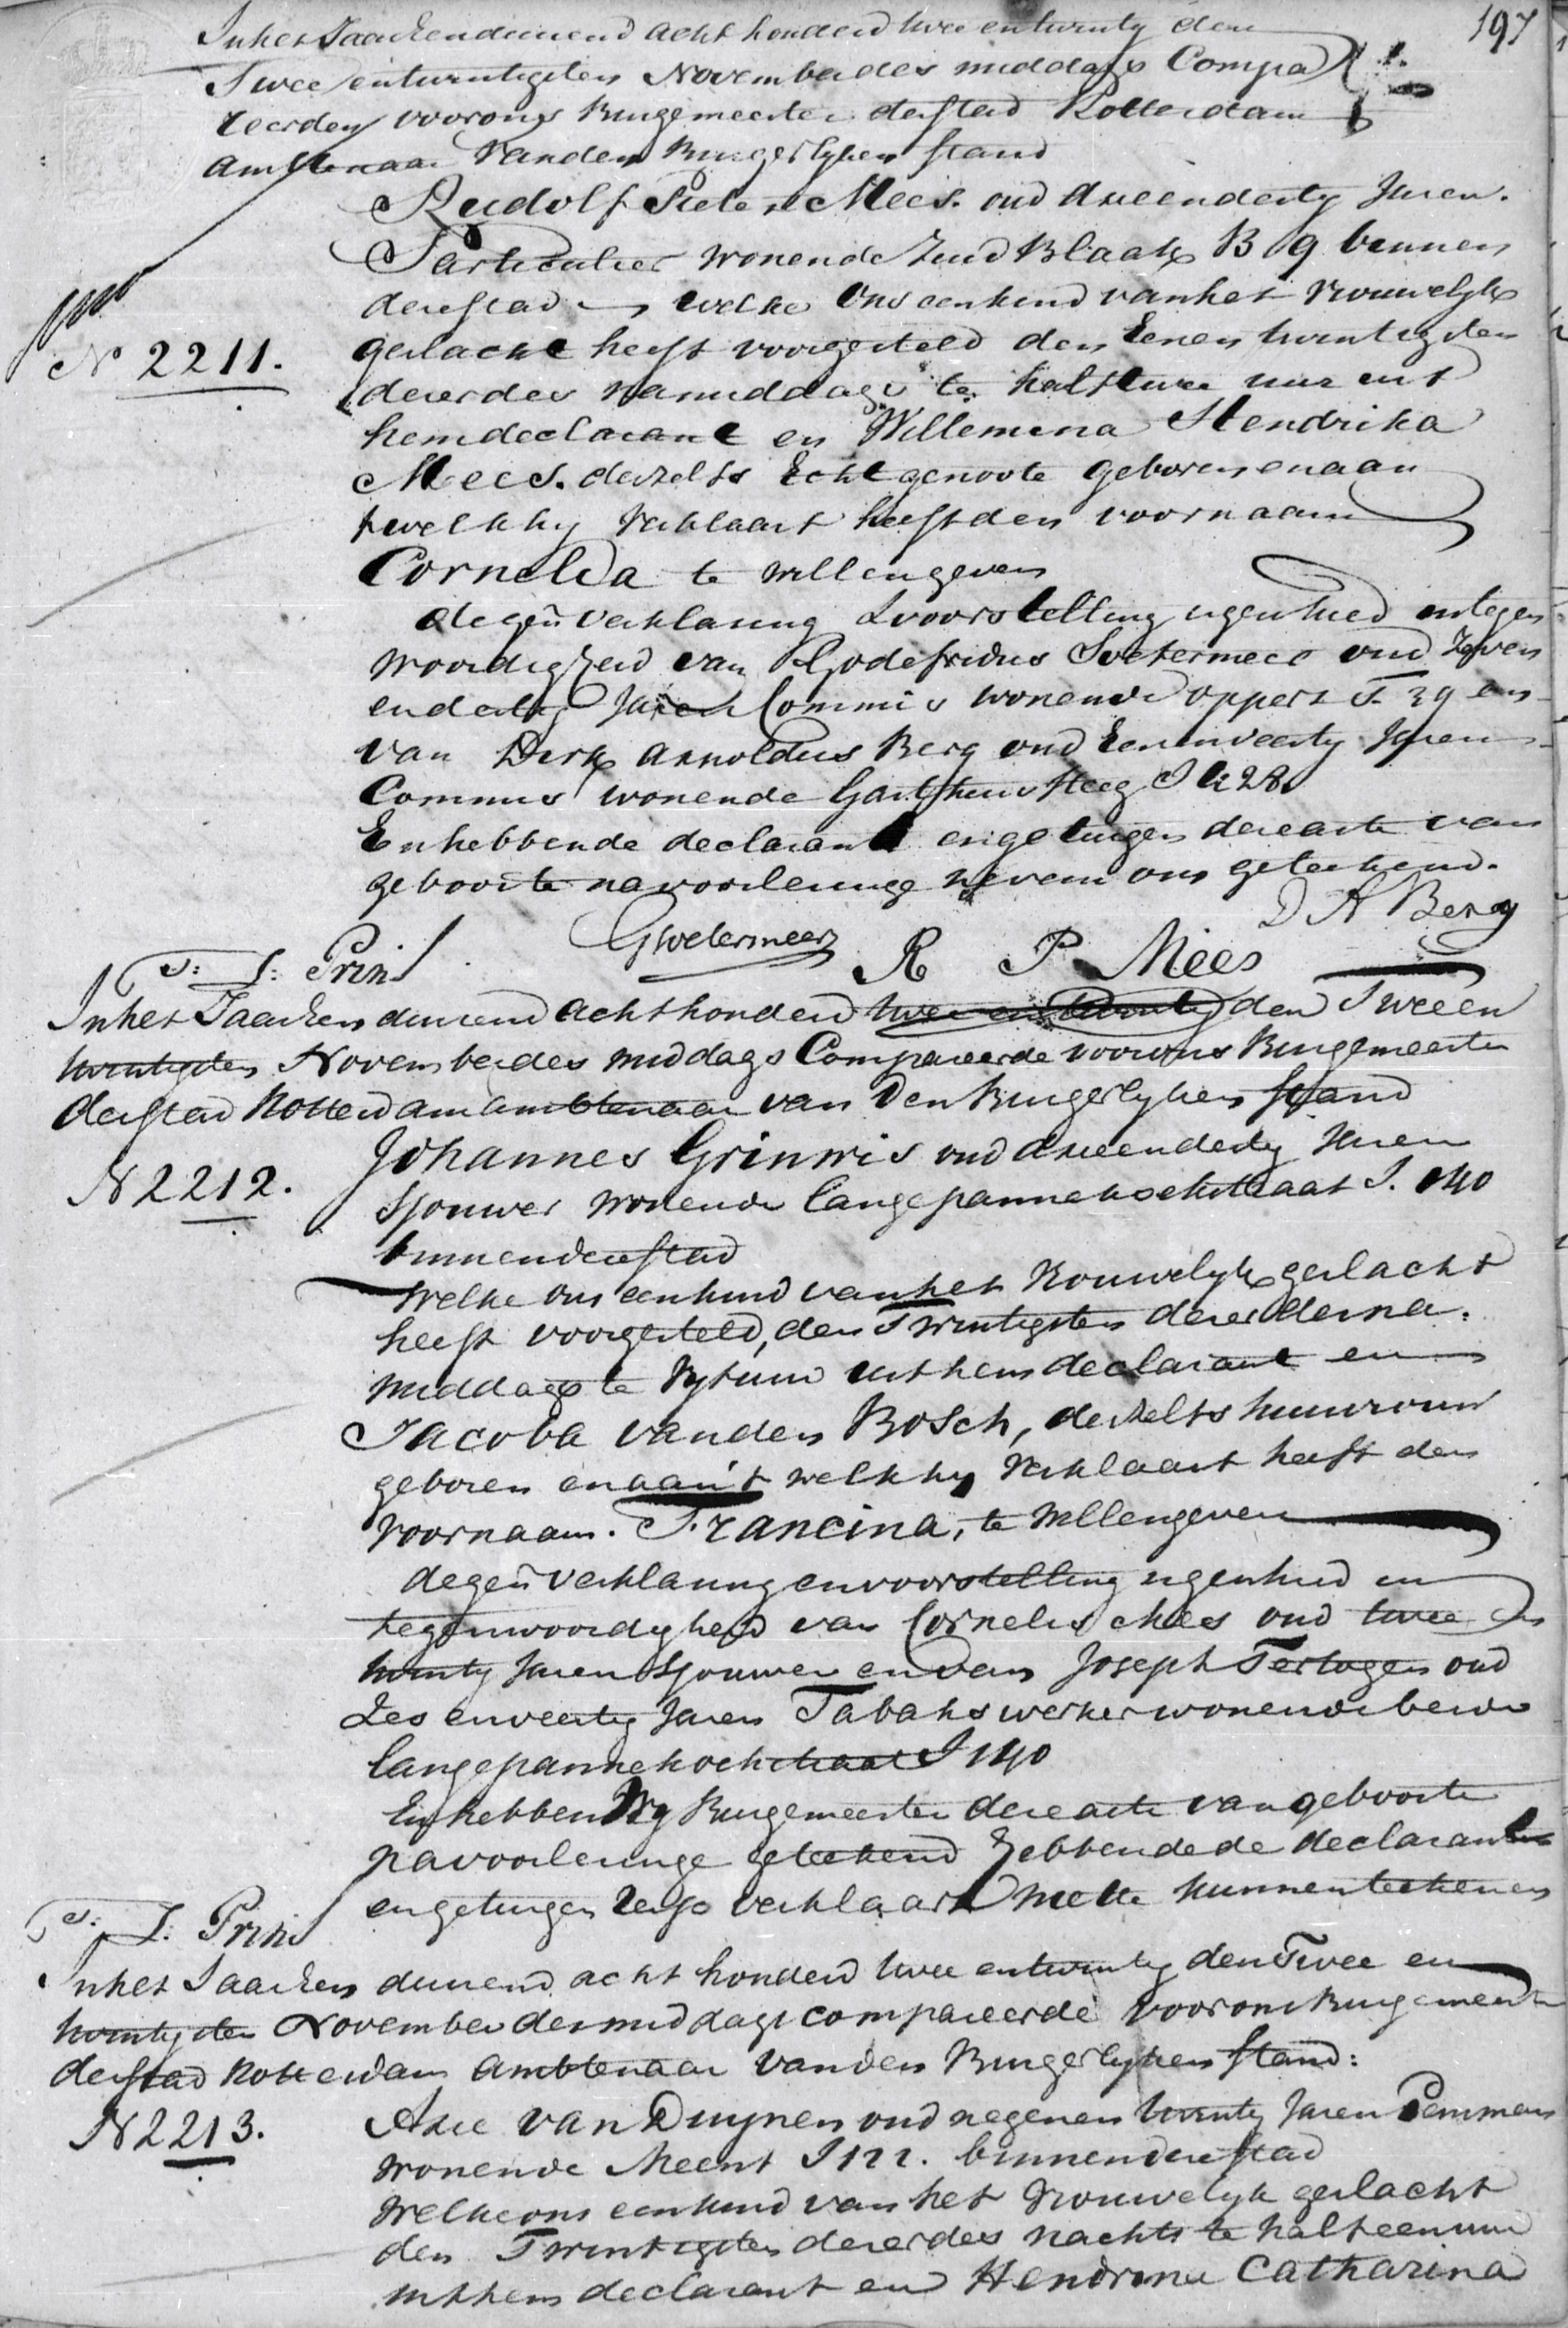 197
In het Jaar Eenduizend acht honderd twee en twintig den
Twee en twintigsten November des middags Compa
reerden voor ons Burgemeester der stad Rotterdam
ambtenaar van den Burgerlyken stand
Rudolf Pieter Mees. oud drie en dertig Jaren.
Particulier wonende Zuid Blaak B 9 binnen
deze stad welke ons een kind van het vrouwelyk
geslacht heeft voorgesteld den Eenen twintigsten
dezer des namiddags te half twee uur uit
No 2211.
hem declarant en Willemina Hendrika
Mees. deszelfs Echtgenoote geboren en aan
twelk hy verklaart heeft den voornaam
Cornelia te willen geven
degen verklaring & voorstelling zyn geschied in tegen
woordigheid van Godefridus Soetermeer oud Zeven
en dertig Jaren Commis wonende Oppert T. 39 en
van Dirk Arnoldus Berg oud Eenenveertig Jaren
Commis wonende Gasthuis steeg I 228
En hebbende declarant en getuigen deze acte van
geboorte na voorlezinge nevens ons geteekend.
D A Berg
GSoetermeer
R P Mees
P: J: Prins
In het Jaar Een duizend acht honderd twee en twintig den Twee en
twintigsten November des middags Compareerde voor ons Burgemeester
der stad Rotterdam ambtenaar van den Burgerlyken stand
N 2212.
Johannes Grinwis oud drie en dertig Jaren
Sjouwer wonende Lange pannekoekstraat I. 140
binnen deze stad
Welke ons een kind van het Vrouwelyk geslacht
heeft voorgesteld, den Twintigsten dezer des na.
middags te Vyf uur uit hem declarant en
Jacoba van den Bosch, deszelfs huisvrouw
geboren en aan 't welk hy verklaart heeft den
voornaam. Francina, te willen geven
degen verklaring en voorstelling zyn geschied in
tegenwoordigheid van Cornelis Mees oud twee en
twintig Jaren Sjouwer en van Joseph Tertogen oud
Zes en veertig Jaren Tabakswerker wonende beide
Lange pannekoekstraat I 140
En hebben Wy Burgemeester deze acte van geboorte
na voorlezinge geteekend hebbende de declarant
en getuigen verklaard niet te kunnen teekenen
P: J: Prins
In het Jaar Een duizend acht honderd twee en twintig den Twee en
twintigsten November des middags compareerde voor ons Burgemeester
der stad Rotterdam Ambtenaar van den Burgerlyken stand:
N 2213.
Arie van Duynen oud negen en twintig Jaren
wonende Meent I 122. binnen deze stad
Welke ons een kind van het Vrouwelyk geslacht
den Twintigsten dezer des nachts te half een uur
uit hem declarant en Hendrina Catharina